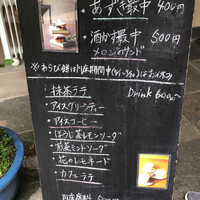 ・あずき最中 400円
・酒かす最中 500円
メロンサウンド
※わらび餅は川床期間中
・抹茶ラテ
Drink 600円〜
・アイスグリーンティー
・アイスコーヒー
・ほうじ茶レモンソーダ
・煎茶ミントソーダ
・花のレモネード
・カフェラテ
川床席料